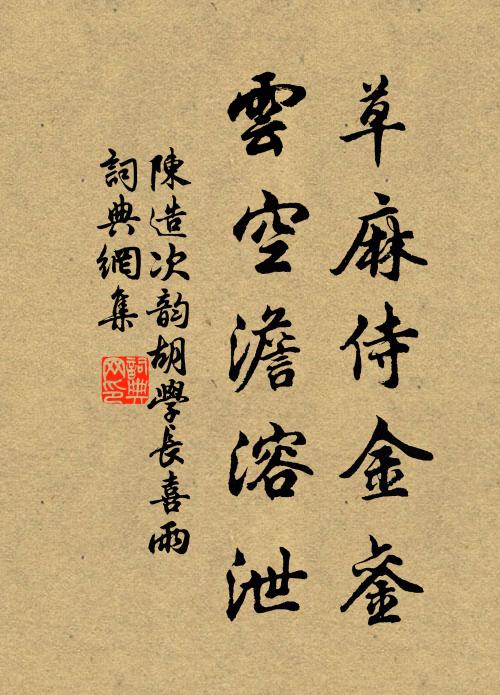 草麻侍金銮
雲空澹溶泄
陳造次韵胡學長喜雨
詞典網集
詞典网印